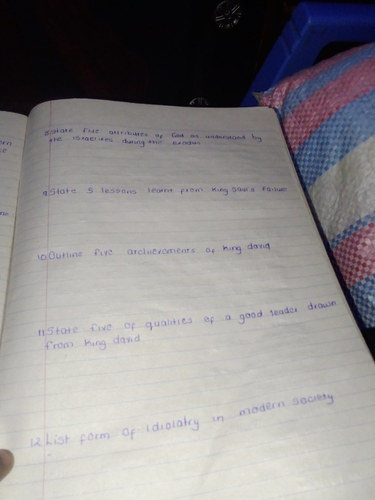 8. State five attributes of God as understood by
the israelites during the exodus
9. State 5 lessons learnt from King Saul's failure
10. Outline five archievements of king david
11. State five of qualities of a good leader drawn
from king david
12. List form of idiolatry in modern society